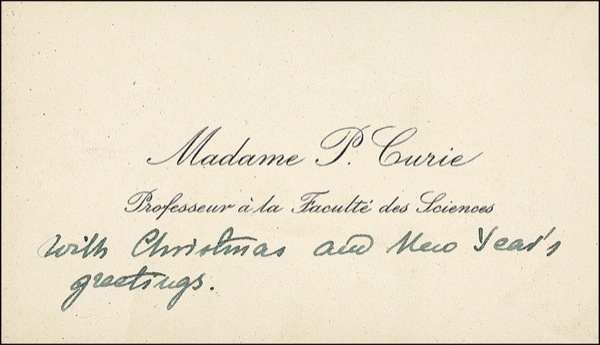 Madame P. Curie
Professeur à la Faculté des Sciences
With Christmas and New Year's
greetings.